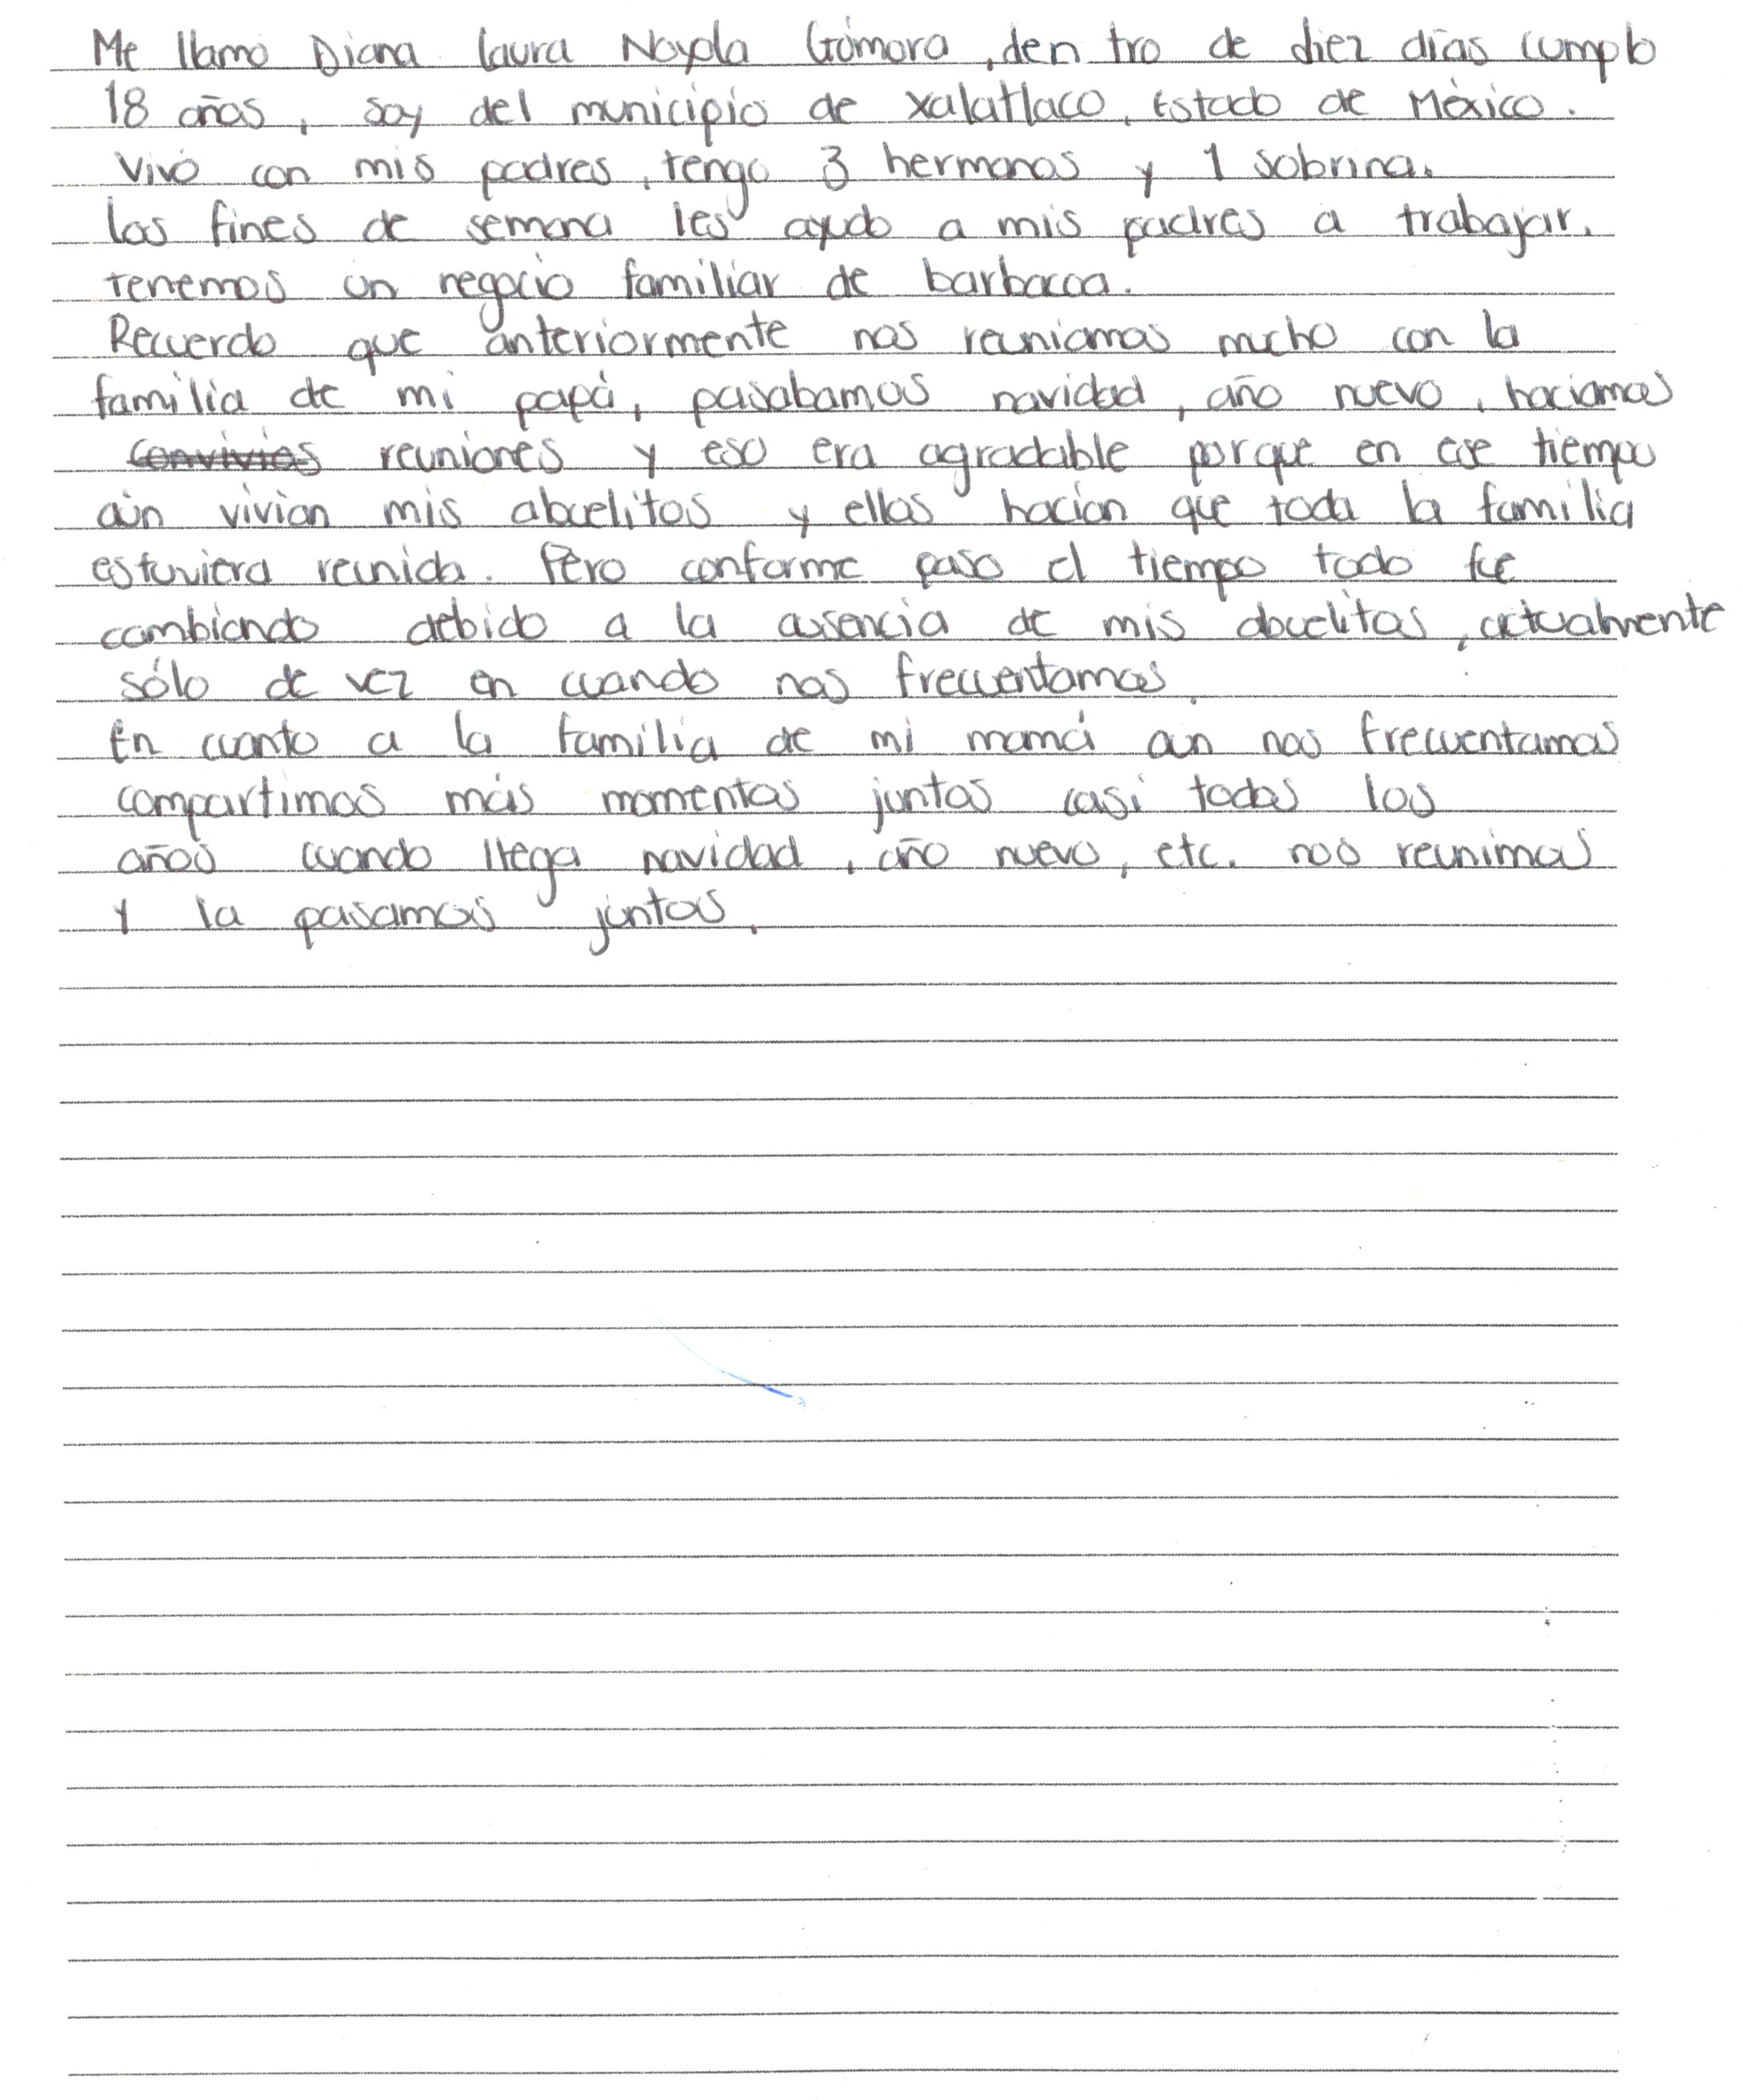 Me llamo Diana Laura Noyola Gómora, den tro de diez días cumplo
18 años, soy del municipio de Xalatlaco, Estado de México.
Vivo con mis padres, tengo 3 hermanos y 1 sobrina.
los fines de semana les ayudo a mis padres a trabajar.
tenemos un negocio familiar de barbacoa.
Recuerdo que anteriormente nos reuniamos mucho con la
familia de mi papá, pasabamos navidad, año nuevo, haciamos
convivios reuniones y eso era agradable porque en ese tiempo
aún vivian mis abuelitos y ellos hacian que toda la familia
estuviera reunida. Pero conforme paso el tiempo todo fue
cambiando debido a la ausencia de mis abuelitos, actualmente
sólo de vez en cuando nos frecuentamos.
En cuanto a la familia de mi mamá aun nos frecuentamos
compartimos más momentos juntos casi todos los
años cuando llega navidad, año nuevo, etc. nos reunimos
y la pasamos juntos.